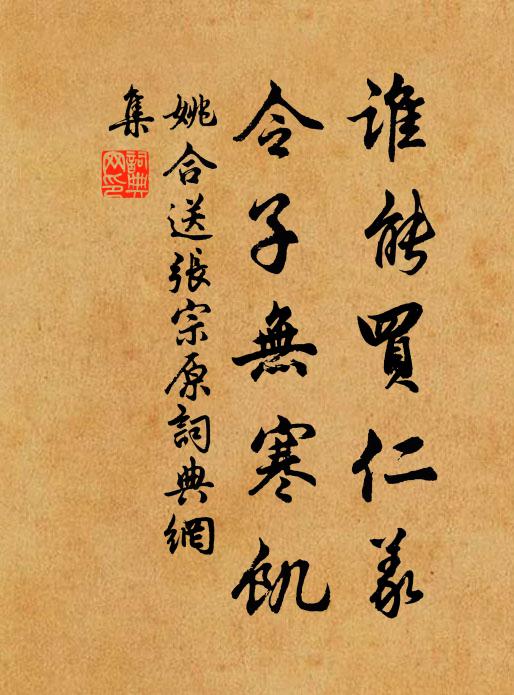 誰能買仁義
令子無寒飢
姚合送張宗原詞典網
集
詞典網印